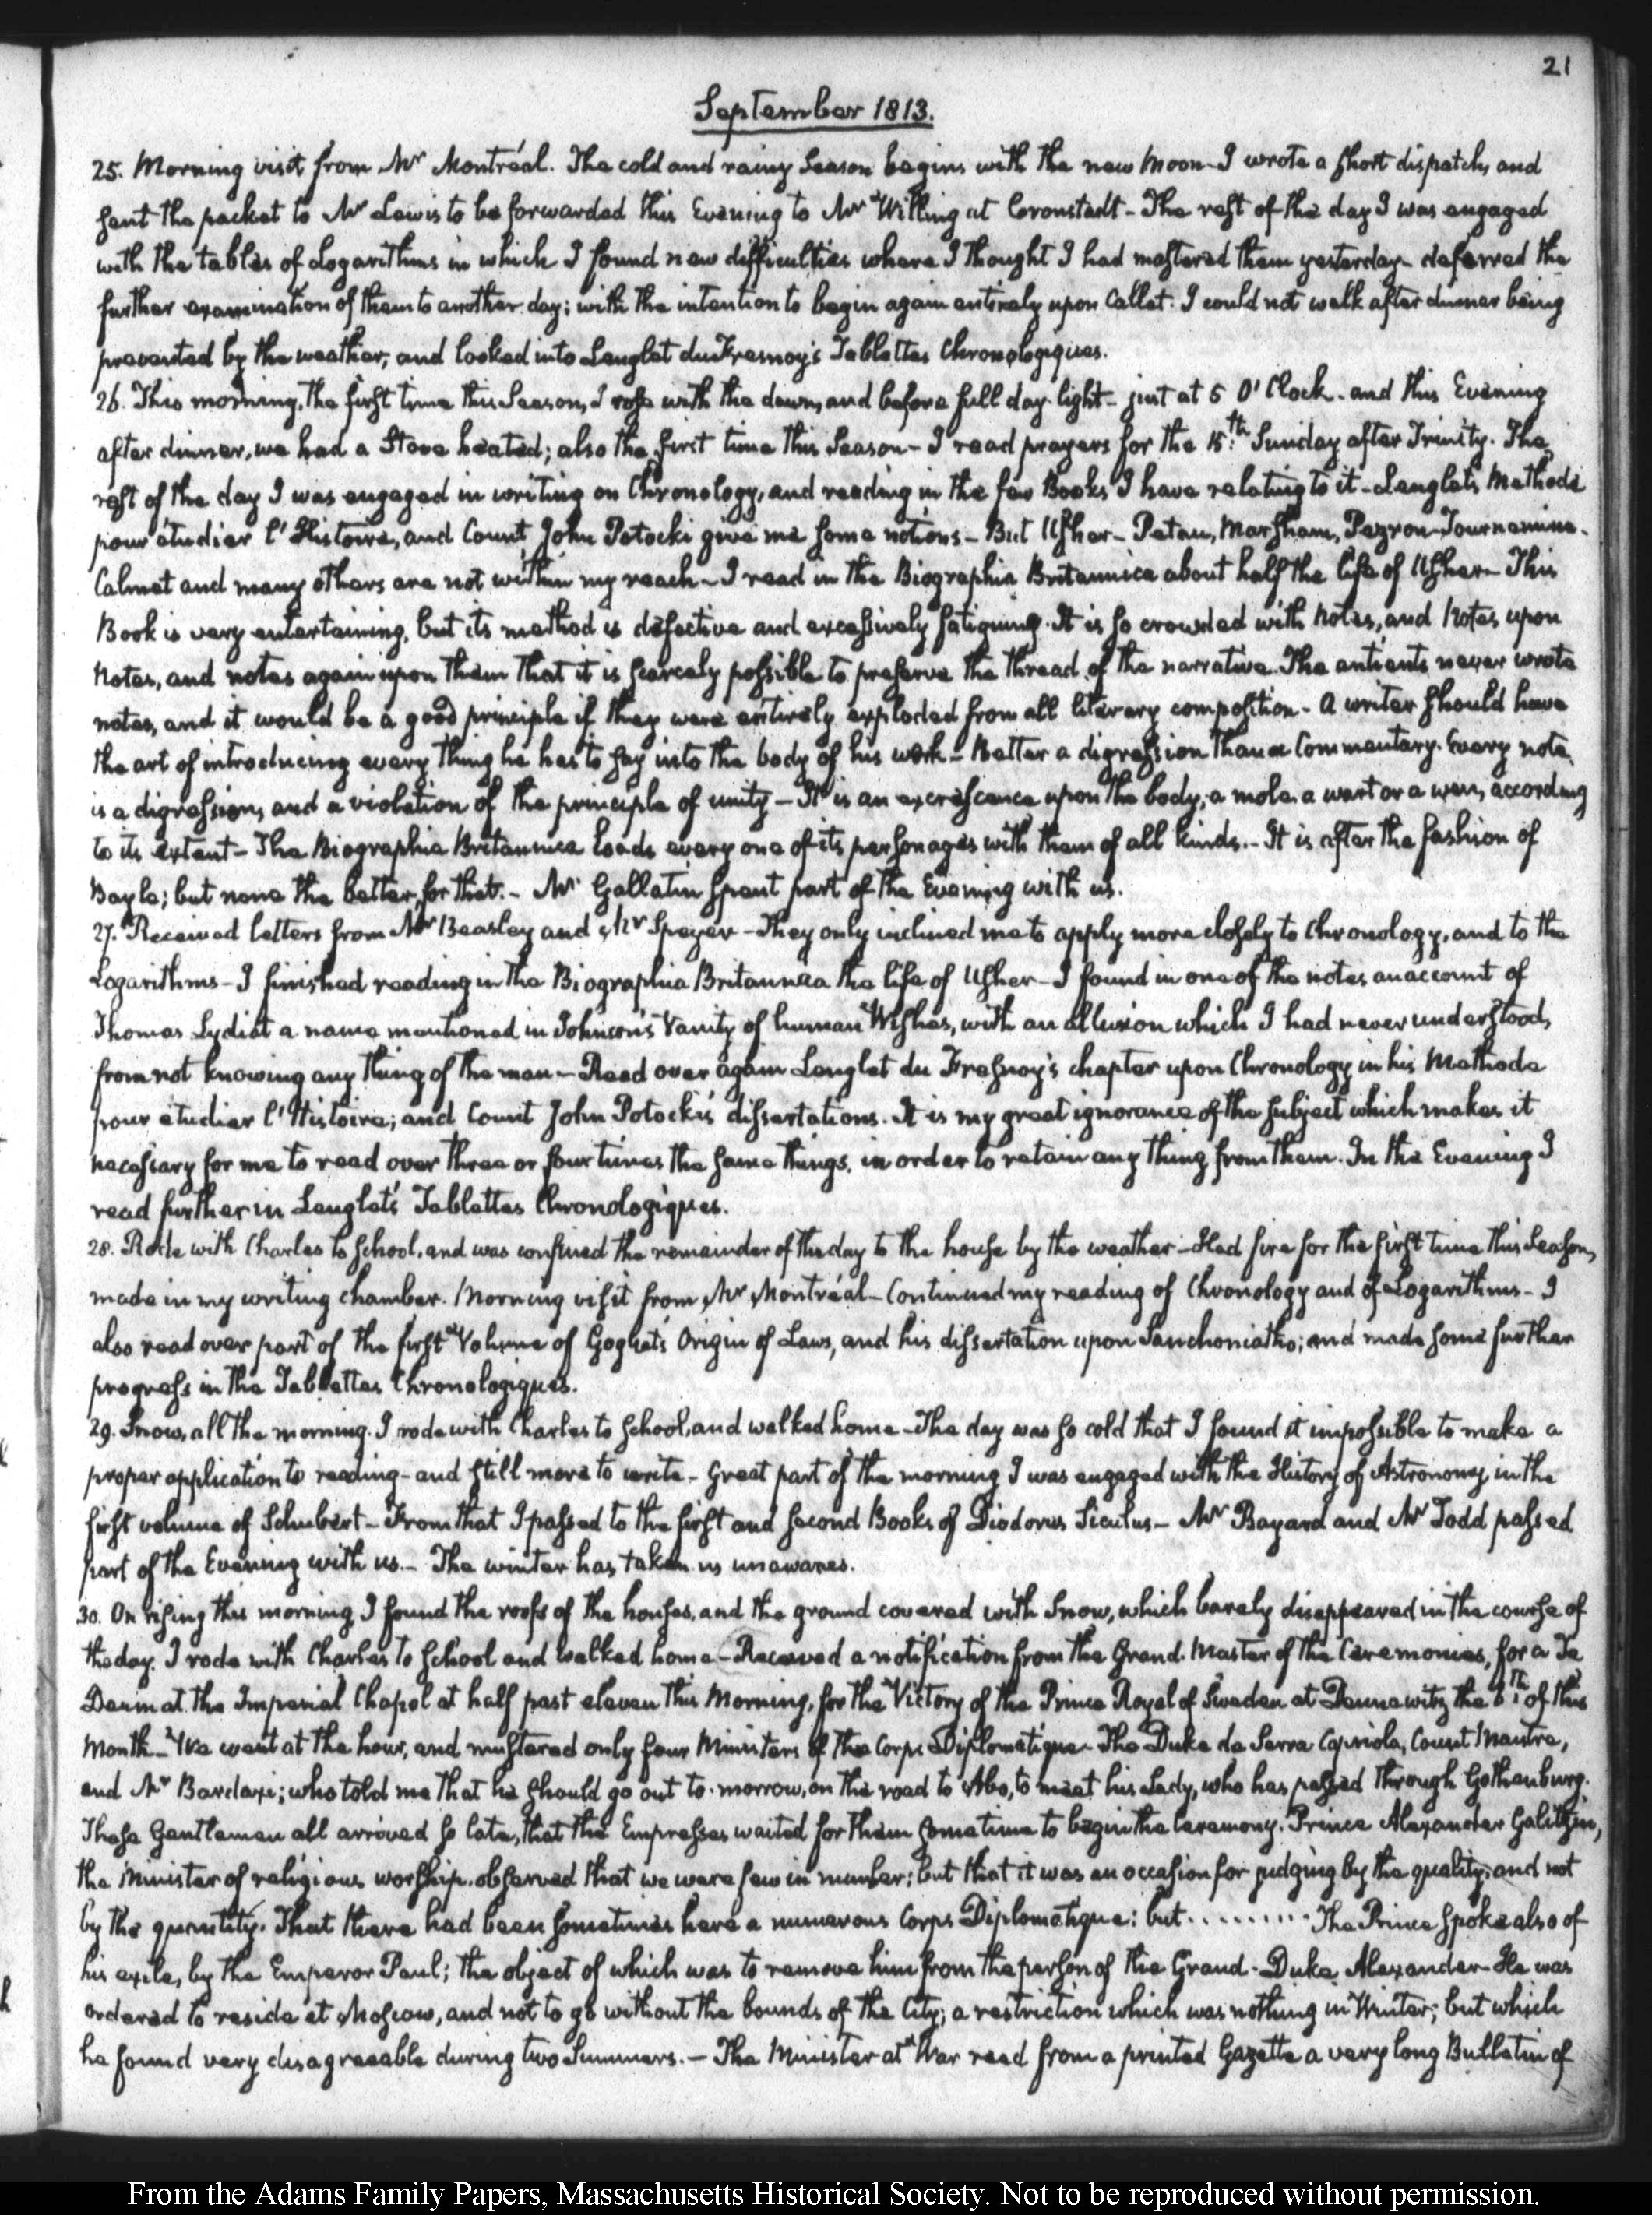 21
September 1813.
25. Morning visit from Mr Montréal. The cold and rainy Season begins with the new Moon - I wrote a short dispatch, and
sent the packet to Mr Lewis to be forwarded this Evening to Mr Willing at Cronstadt - The rest of the day I was engaged
with the tables of Logarithms in which I found new difficulties where I thought I had mastered them yesterday - deferred the
further examination of them to another day; with the intention to begin again entirely upon Callet. I could not walk after dinner being
prevented by the weather, and looked into Lenglet du Fresnoy's Tablettes Chronologiques.
26. This morning, the first time this Season, I rose with the dawn, and before full day-light - just at 5 O'Clock. and this Evening
after dinner, we had a Stove heated; also the first time this Season - I read prayers for the 15th. Sunday after Trinity. The
rest of the day I was engaged in writing on Chronology, and reading in the few Books I have relating to it - Lenglet's Methode
pour étudier l'Histoire, and Count John Potocki give me some notions - But Usher - Petau, Marsham, Pezron Tournemine -
Calmet and many others are not within my reach - I read in the Biographia Britannica about half the life of Usher - This
Book is very entertaining, but its method is defective and excessively fatiguing. It is so crowded with Notes, and Notes upon
Notes, and notes again upon them that it is scarcely possible to preserve the thread of the narrative. The antients never wrote
notes, and it would be a good principle if they were entirely exploded from all literary composition - A writer should have
the art of introducing every thing he has to say into the body of his work - Better a digression than a Commentary. Every note
is a digression, and a violation of the principle of unity - It is an excrescence upon the body; a mole a wart or a wen, according
to its extent - The Biographia Britannica loads every one of its personages with them of all kinds. - It is after the fashion of
Bayle; but none the better for that. - Mr Gallatin spent part of the Evening with us.
27. Received letters from Mr Beasley and Mr Speyer - They only inclined me to apply more closely to Chronology, and to the
Logarithms - I finished reading in the Biographia Britannica the life of Usher - I found in one of the notes an account of
Thomas Lydiat a name mentioned in Johnson's Vanity of human Wishes, with an allusion which I had never understood,
from not knowing any thing of the man - Read over again Lenglet du Fresnoy's chapter upon Chronology in his Methode
pour étudier l'Histoire; and Count John Potocki's dissertations. It is my great ignorance of the subject which makes it
necessary for me to read over three or four times the same things, in order to retain any thing from them. In the Evening I
read further in Lenglet's Tablettes Chronologiques.
28. Rode with Charles to School, and was confined the remainder of the day to the house by the weather - Had fire for the first time this Season,
made in my writing chamber. Morning visit from Mr Montréal - Continued my reading of Chronology and of Logarithms - I
also read over part of the first Volume of Goguet's Origin of Laws, and his dissertation upon Sanchoniatho; and made some further
progress in the Tablettes Chronologiques.
29. Snow, all the morning. I rode with Charles to School, and walked home - The day was so cold that I found it impossible to make a
proper application to reading - and still more to write - Great part of the morning I was engaged with the History of Astronomy in the
first volume of Schubert - From that I passed to the first and second Books of Diodorus Siculus - Mr Bayard and Mr Todd passed
part of the Evening with us. - The winter has taken us unawares.
30. On rising this morning I found the roofs of the houses, and the ground covered with Snow, which barely disappeared in the course of
the day. I rode with Charles to School and walked home - Received a notification from the Grand-Master of the Ceremonies, for a Te
Deum at the Imperial Chapel at half past eleven this Morning, for the Victory of the Prince Royal of Sweden at Dennewitz the 6th of this
Month - We went at the hour, and mustered only four Ministers of the Corps Diplomatique - The Duke de Serra Capriola, Count Maistre,
and Mr Bardaxi; who told me that he should go out to-morrow, on the road to Abo, to meet his Lady, who has passed through Gothenburg.
These Gentlemen all arrived so late, that the Empresses waited for them sometime to begin the ceremony. Prince Alexander Galitzin,
the Minister of religious worship, observed that we were few in number; but that it was an occasion for judging by the quality, and not
by the quantity. That there had been sometimes here a numerous Corps Diplomatique: but . . . . . . . . . The Prince spoke also of
his exile, by the Emperor Paul; the object of which was to remove him from the person of the Grand-Duke Alexander - He was
ordered to reside at Moscow, and not to go without the bounds of the City; a restriction which was nothing in Winter; but which
he found very disagreeable during two Summers. - The Minister at War read from a printed Gazette a very long Bulletin of
From the Adams Family Papers, Massachusetts Historical Society. Not to be reproduced without permission.